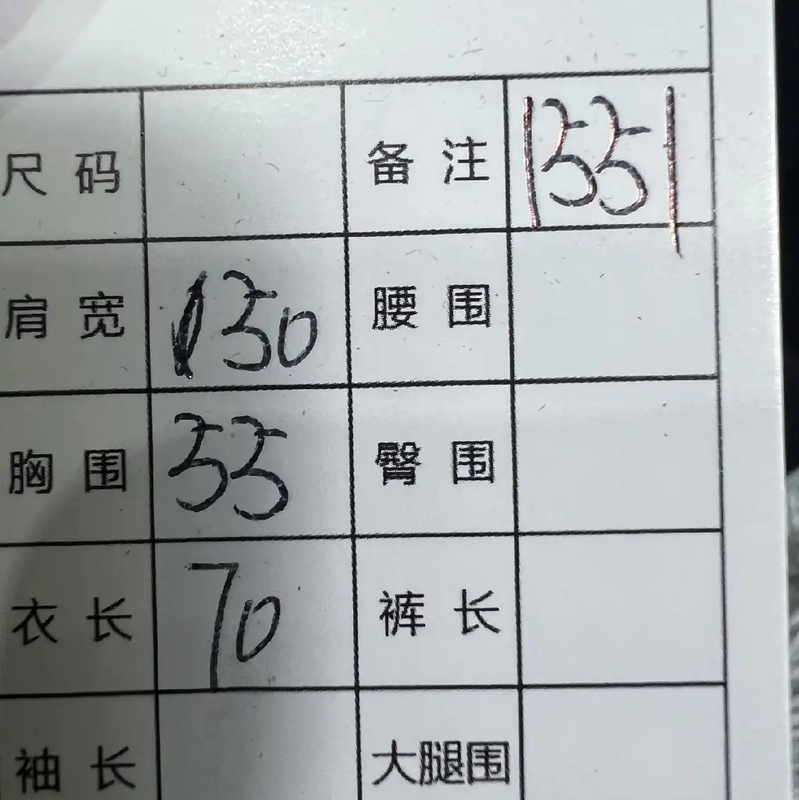 尺码 备注 1551
肩宽 150 腰围
胸围 55 臀围
衣长 70 裤长
袖长 大腿围